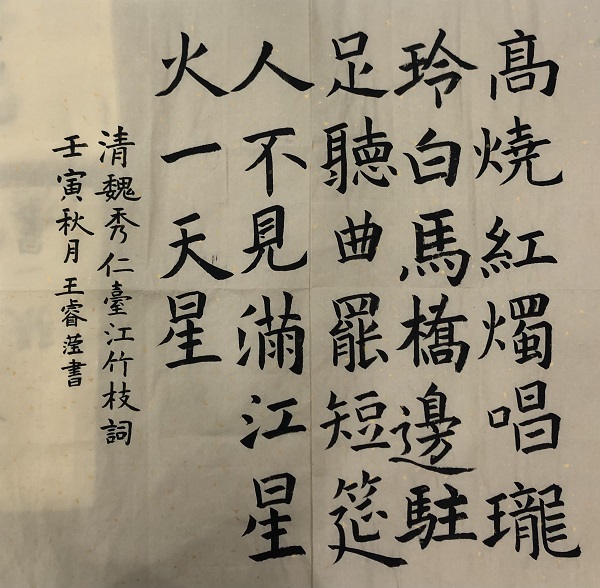 髙燒紅燭唱瓏
玲白馬橋邊駐
足聽曲罷短筵
人不見滿江星
火一天星
清魏秀仁臺江竹枝詞
壬寅秋月王睿滢書